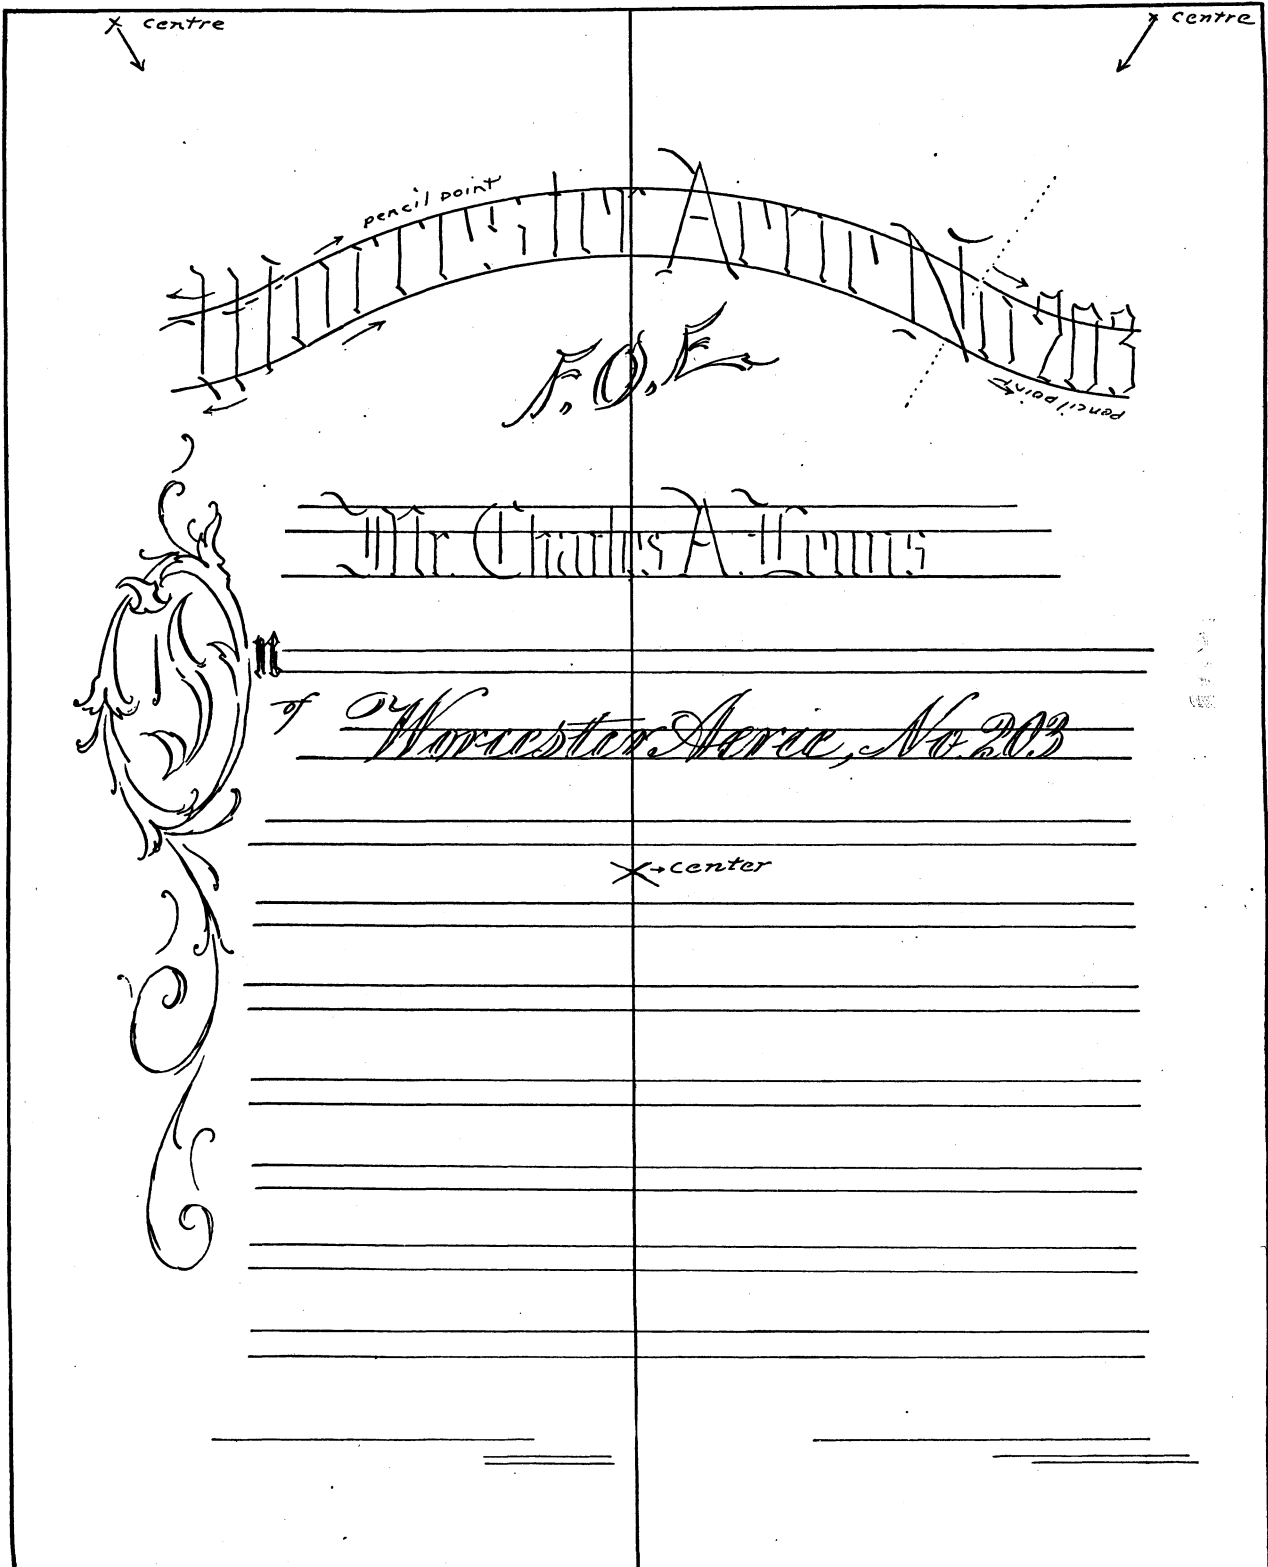 centre
centre
pencil point
Worcester Aerie No. 203
pencil point
F.O.E.
Mr. Charles A.
n
of Worcester Aerie, No. 203
center